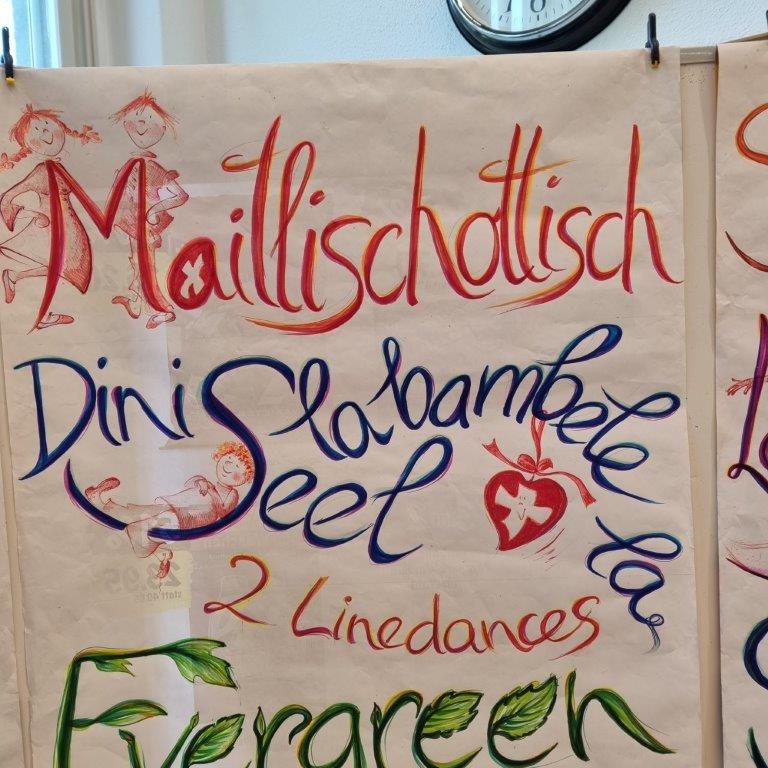 Maitlischottisch
Dini Seel la bambele la
2 Linedances
Evergreen